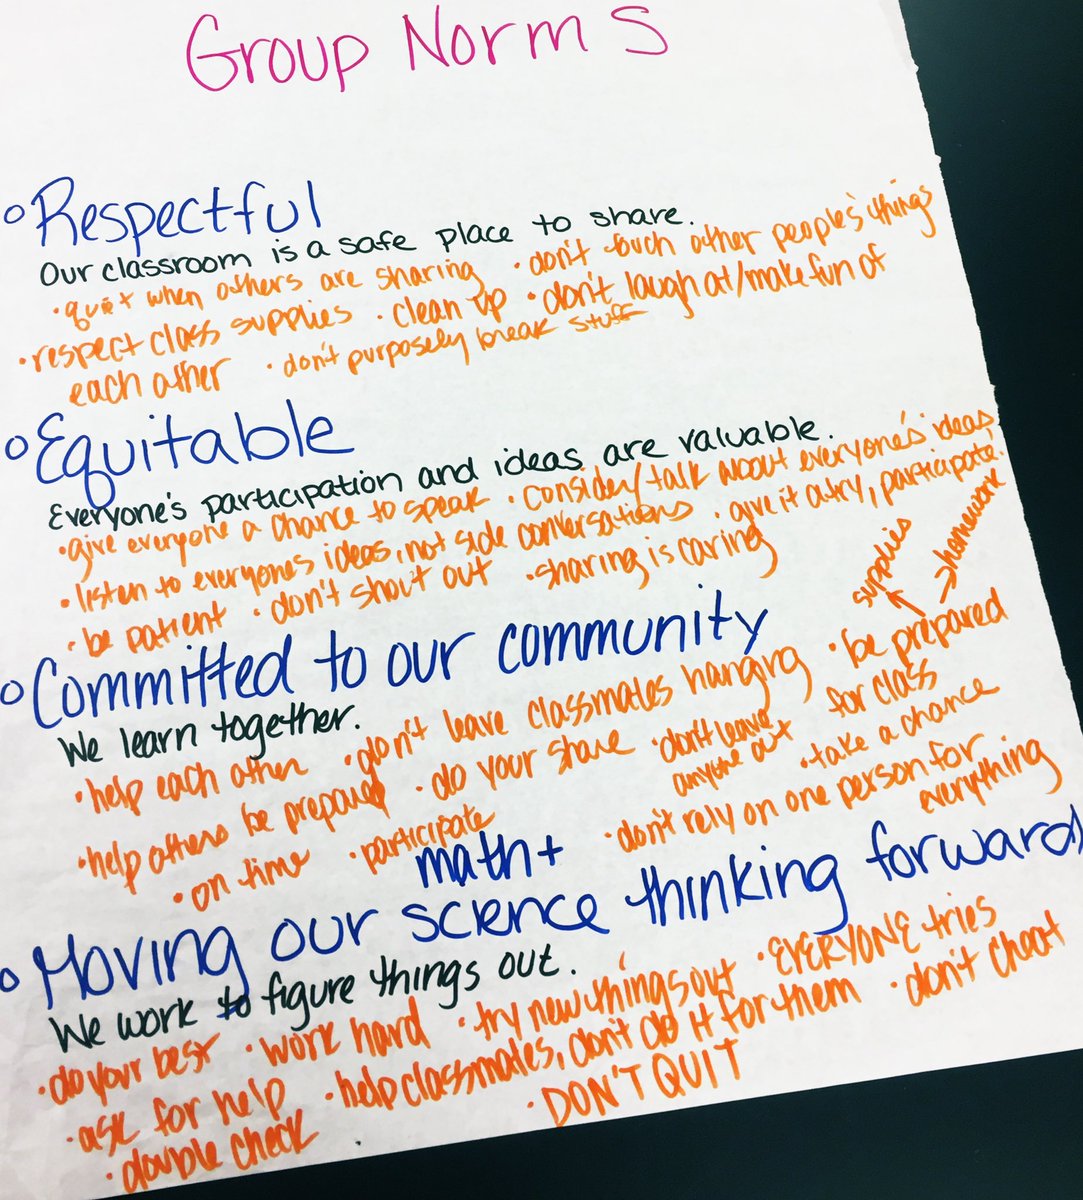 Group Norms
Respectful
Our classroom is a safe place to share.
• quiet when others are sharing • don't touch other people's things
• respect class supplies • clean up • don't laugh at/make fun of
each other • don't purposely break stuff
Equitable
Everyone's participation and ideas are valuable.
• give everyone a chance to speak • consider/talk about everyone's ideas
• listen to everyone's ideas, not side conversations • give it a try, participate!
• be patient • don't shout out • sharing is caring
supplies
homework
Committed to our community
We learn together.
• help each other • don't leave classmates hanging • be prepared
for class
• help others be prepared • do your share • don't leave
anyone out
• take a chance
• on time • participate • don't rely on one person for
everything
math +
Moving our science thinking forward
We work to figure things out.
• do your best • work hard • try new things out • EVERYONE tries
• ask for help • help classmates, don't do it for them • don't cheat
• double check • DON'T QUIT